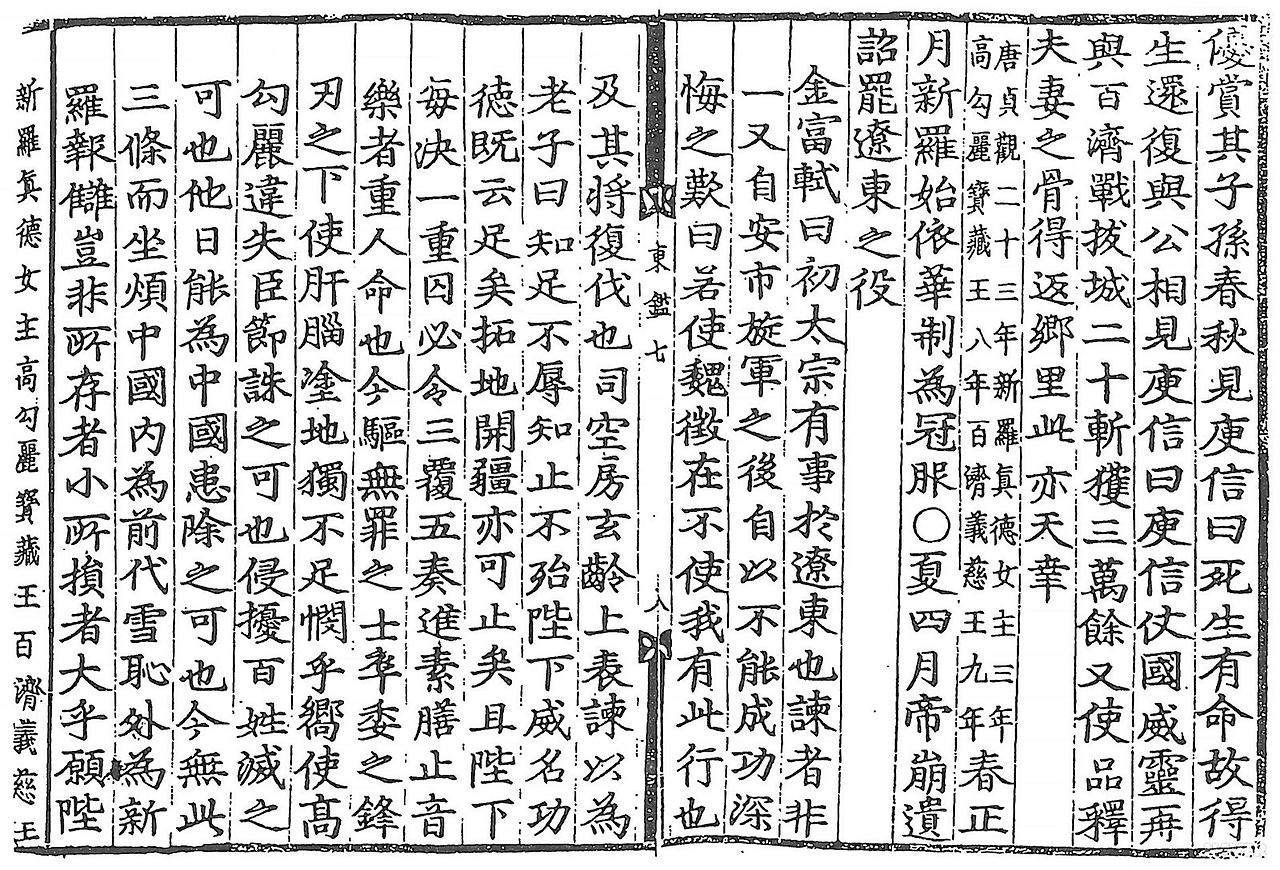 優賞其子孫春秋見庾信曰死生有命故得
生還復與公相見庾信曰庾信仗國威靈再
與百濟戰拔城二十斬獲三萬餘又使品釋
夫妻之骨得返鄕里此亦天幸
唐貞觀二十三年新羅眞德女主三年
高勾麗寶藏王八年百濟義慈王九年春正
月新羅始依華制為冠服〇夏四月帝崩遺
詔罷遼東之役
金富軾曰初太宗有事於遼東也諫者非
一又自安市旋軍之後自以不能成功深
悔之歎曰若使魏徵在不使我有此行也
東鑑七
八
及其將復伐也司空房玄齡上表諫以為
老子曰知足不辱知止不殆陛下威名功
德既云足矣拓地開疆亦可止矣且陛下
每决一重囚必令三覆五奏進素膳止音
樂者重人命也今驅無罪之士卒委之鋒
刃之下使肝腦塗地獨不足憫乎嚮使高
勾麗違失臣節誅之可也侵擾百姓滅之
可也他日能為中國患除之可也今無此
三條而坐煩中國內為前代雪恥外為新
羅報讎豈非所存者小所損者大乎願陛
新羅眞德女主高勾麗寶藏王百濟義慈王